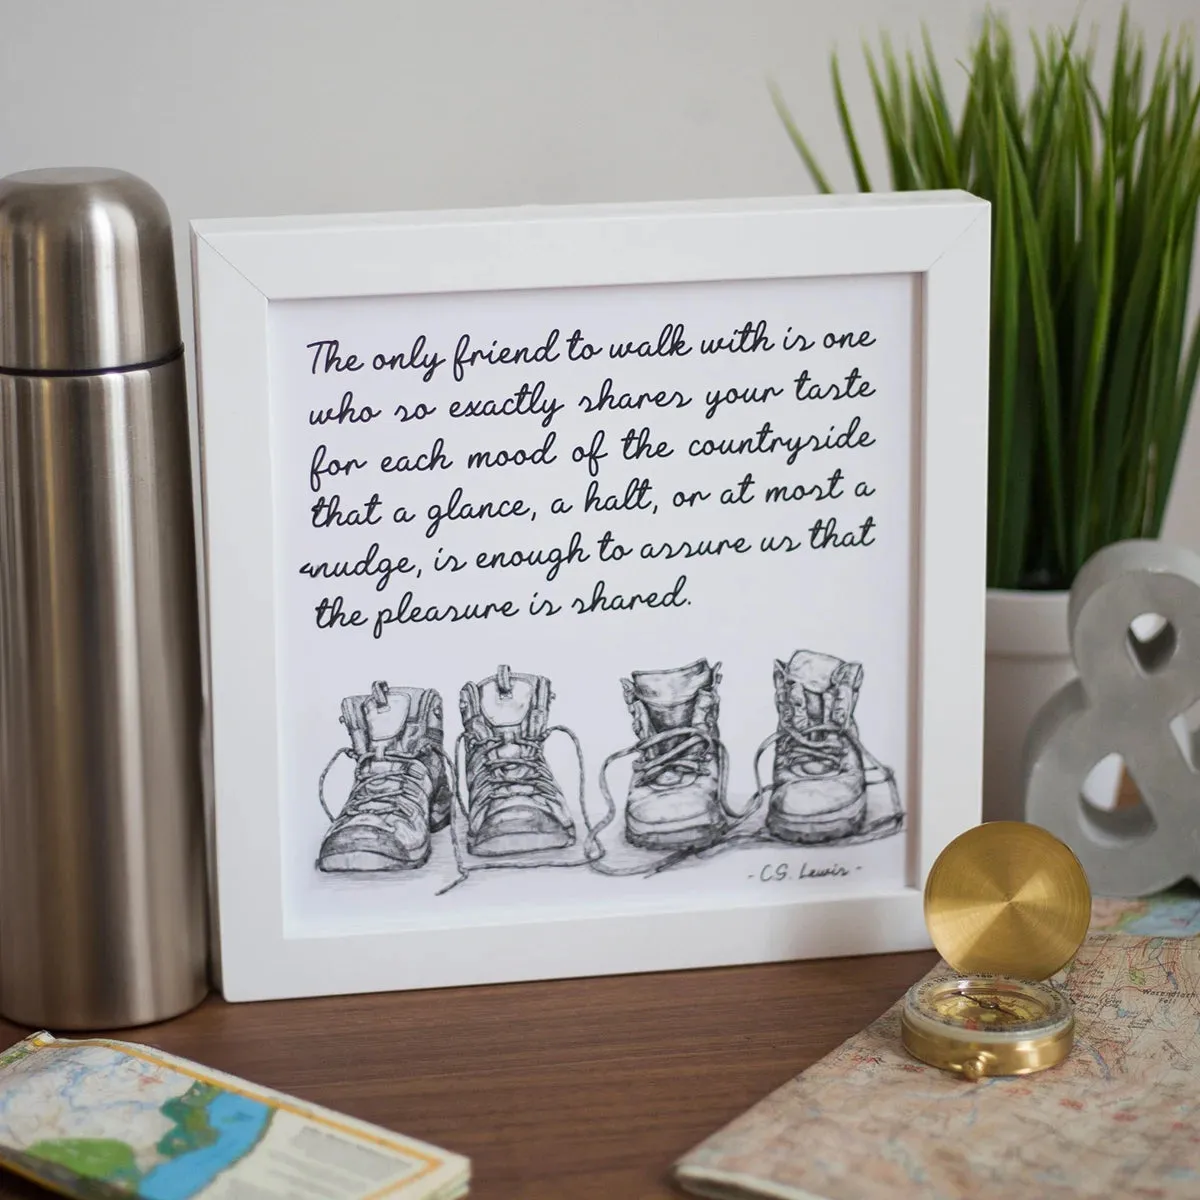 The only friend to walk with is one
who so exactly shares your taste
for each mood of the countryside
that a glance, a halt, or at most a
nudge, is enough to assure us that
the pleasure is shared.
- C.S. Lewis -